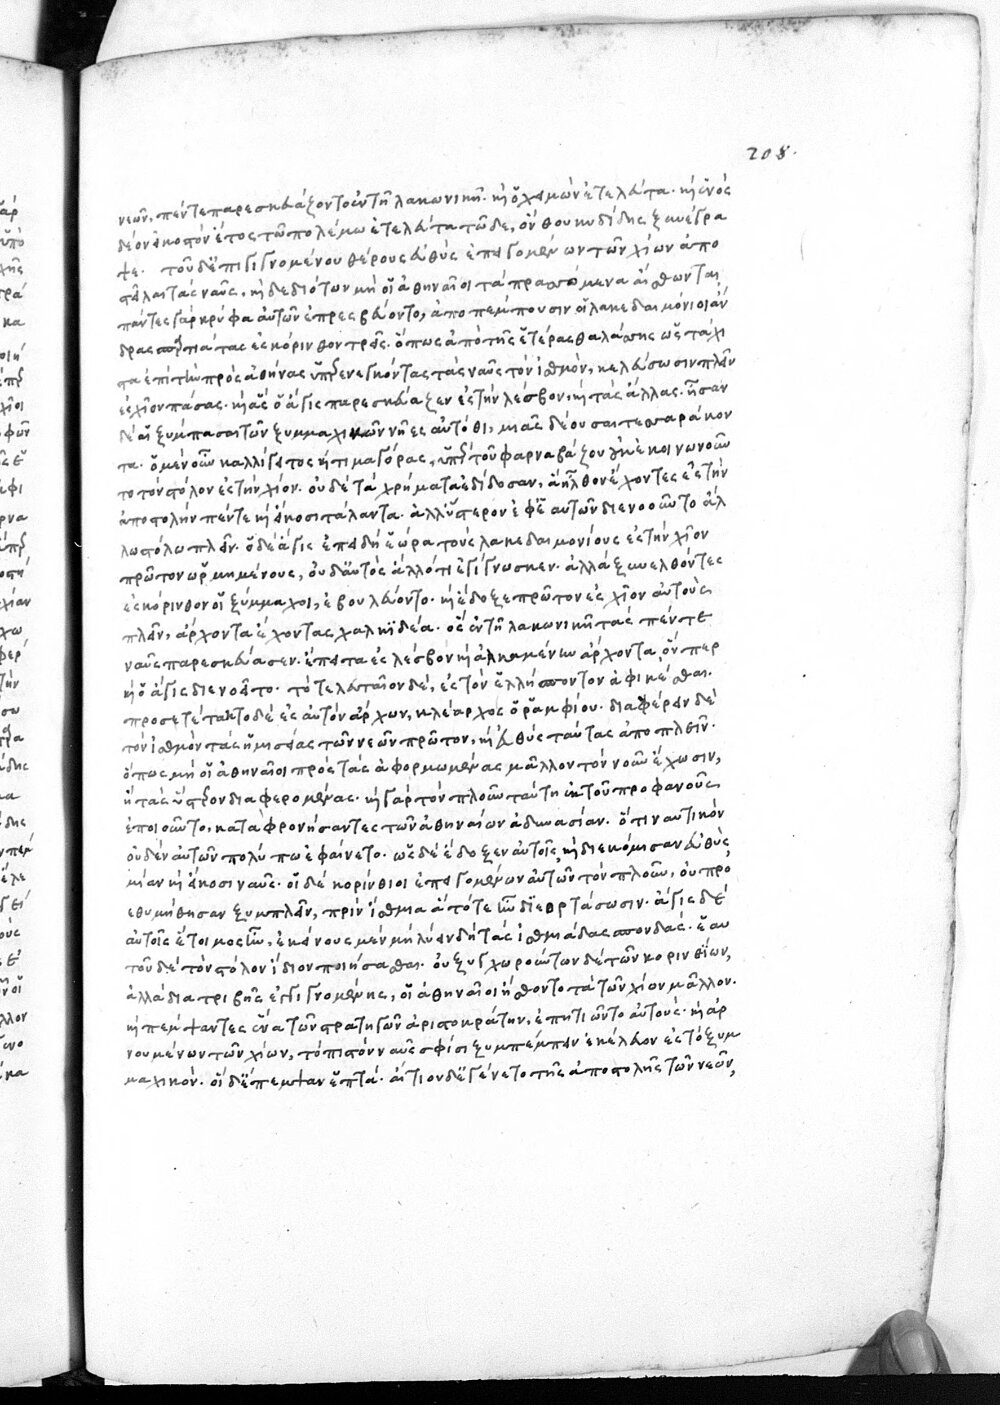 νεῶν, πέντε παρεσκευάζοντο ἐν τῇ λακωνικῇ. καὶ ὁ χειμὼν ἐτελεύτα. καὶ ἑνὸς
δέον εἰκοστὸν ἔτος τῶ πολέμω ἐτελεύτα τῶδε, ὃν θουκυδίδης ξυνέγρα
ψε. τοῦ δ' ἐπιγιγνομένου θέρους εὐθὺς ἐπειγομένων τῶν χίων ἀπο
στεῖλαι τὰς ναῦς, καὶ δεδιότων μὴ οἱ ἀθηναῖοι τὰ πρασσόμενα αἴσθωνται
πάντες γὰρ κρύφα αὐτῶν ἐπρεσβεύοντο, ἀποπέμπουσιν οἱ λακεδαιμόνιοι ἄν
δρας σπαρτιάτας ἐς κόρινθον τρεῖς. ὅπως ἀπὸ τῆς ἑτέρας θαλάσσης ὡς τάχι
στα ἐπὶ τὴν πρὸς ἀθήνας ὑπερενεγκόντας τὰς ναῦς τὸν ἰσθμὸν, κελεύσωσιν πλεῖν
ἐς χῖον πάσας. καὶ ἃς ὁ ἄγις παρεσκεύαζεν ἐς τὴν λέσβον, καὶ τὰς ἄλλας. ἦσαν
δὲ αἱ ξύμπασαι τῶν ξυμμαχικῶν νῆες αὐτόθι, μιᾶς δέουσαι τεσσαράκον
τα. ὁ μὲν οὖν καλλίγειτος καὶ τιμαγόρας, ὑπὲρ τοῦ φαρναβάζου οὐκ ἐκοινωνοῦν
το τὸν στόλον ἐς τὴν χίον. οὐδὲ τὰ χρήματα ἐδίδοσαν, ἃ ἦλθον ἔχοντες ἐς τὴν
ἀποστολὴν πέντε καὶ εἴκοσι τάλαντα. ἀλλ' ὕστερον ἐφ' ἑαυτῶν διενοοῦντο ἄλ
λω στόλω πλεῖν. ὁ δὲ ἄγις ἐπειδὴ ἑώρα τοὺς λακεδαιμονίους ἐς τὴν χῖον
πρῶτον ὡρμημένους, οὐδ' αὐτὸς ἄλλό τι ἐγίγνωσκεν. ἀλλὰ ξυνελθόντες
ἐς κόρινθον οἱ ξύμμαχοι, ἐβουλεύοντο. καὶ ἔδοξε πρῶτον ἐς χῖον αὐτοὺς
πλεῖν, ἄρχοντα ἔχοντας χαλκιδέα. ὃς ἐν τῇ λακωνικῇ τὰς πέντε
ναῦς παρεσκεύασεν. ἔπειτα ἐς λέσβον καὶ ἀλκαμένην ἄρχοντα ὅνπερ
καὶ ὁ ἄγις διενοεῖτο. τὸ τελευταῖον δὲ, ἐς τὸν ἑλλήσποντον ἀφικέσθαι.
προσετέτακτο δὲ ἐς αὐτὸν ἄρχων, κλέαρχος ὁ ῥαμφίου. διαφέρειν δὲ
τὸν ἰσθμὸν τὰς ἡμισείας τῶν νεῶν πρῶτον, καὶ εὐθὺς ταύτας ἀποπλεῖν.
ὅπως μὴ οἱ ἀθηναῖοι πρὸς τὰς ἀφορμωμένας μᾶλλον τὸν νοῦν ἔχωσιν,
ἢ τὰς ὕστερον διαφερομένας. καὶ γὰρ τὸν πλοῦν ταύτη ἐκ τοῦ προφανοῦς
ἐποιοῦντο, καταφρονήσαντες τῶν ἀθηναίων ἀδυνασίαν. ὅτι ναυτικὸν
οὐδὲν αὐτῶν πολύ πω ἐφαίνετο. ὡς δὲ ἔδοξεν αὐτοῖς, καὶ διεκόμισαν εὐθὺς
μίαν καὶ εἴκοσι ναῦς. οἱ δὲ κορίνθιοι ἐπειγομένων αὐτῶν τὸν πλοῦν, οὐ προ
εθυμήθησαν ξυμπλεῖν, πρὶν ἴσθμια ἃ τότε ἦν διεορτάσωσιν. ἄγις δὲ
αὐτοῖς ἕτοιμος ἦν, ἐκείνους μὲν μὴ λύειν δὴ τὰς ἰσθμιάδας σπονδάς. ἑαυ
τοῦ δὲ τὸν στόλον ἴδιον ποιήσασθαι. οὐ ξυγχωρούντων δὲ τῶν κορινθίων,
ἀλλὰ διατριβῆς ἐγγιγνομένης, οἱ ἀθηναῖοι ᾔσθοντο τὰ τῶν χίων μᾶλλον.
καὶ πέμψαντες ἕνα τῶν στρατηγῶν ἀριστοκράτην, ἐπῃτιῶντο αὐτούς. καὶ ἀρ
νουμένων τῶν χίων, τὸ πιστὸν ναῦς σφίσι ξυμπέμπειν ἐκέλευον ἐς τὸ ξυμ
μαχικόν. οἱ δ' ἔπεμψαν ἑπτά. αἴτιον δ' ἐγένετο τῆς ἀποστολῆς τῶν νεῶν,
208.